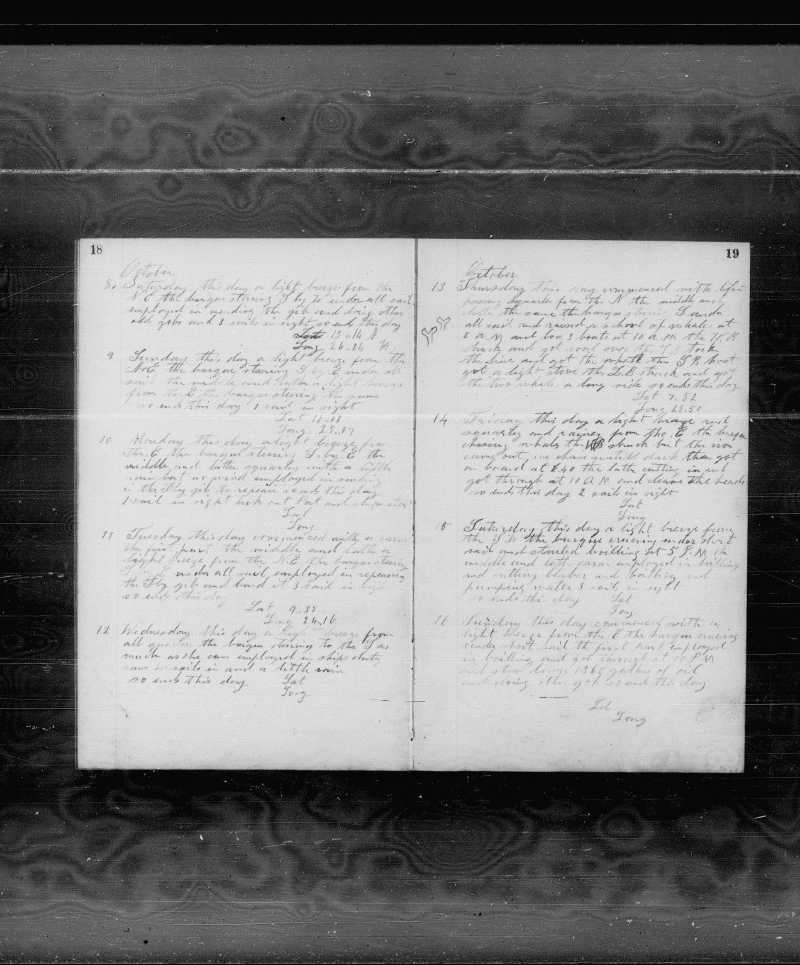 18
October
8. Saturday this day a light breeze from the
N E the barque steering S by W under all sail
employed in mending the jib and doing other
odd jobs and 3 sails in sight so ends this day
Lat 13.14 N
Long 26.04 W
9 Sunday this day a light breeze from the
N.E the barque steering S by E under all
sail the middle and latter a light breeze
from the E the barque steering the same
so ends this day 1 sail in sight
Lat 11.01
Long 25.07
10 Monday this day a light breeze from
the E the barque steering S. by E the
middle and latter squarley with a little
rain employed in mending
the Fly jib to repair so ends this day
1 sail in sight look out
Lat
Long
11 Tuesday this day commenced with a
the first part the middle and latter a
light breeze from the N.E the barque steering
under all sail employed in repairing
the Fly jib and bend it 3 sail in sight
so ends this day
Lat 9.35
Long 24.16
12 Wednesday this day a light breeze from
all quarters the barque steering to the S as
much as she can employed in ships duty
saw sails in and a little rain
so ends this day Lat
Long
19
October
13 Thursday this day commenced with
from the N the middle and
latter the same the barque steering S under
all sail and raised a school of whales at
8 A M and low 3 boats at 10 A M the W.B
struck and took
the line and got the whale the S B boat
got a light stove the L.B struck and got
the two whales a long side so ends this day
Lat 7.52
Long 23.50
14 Friday this day a light breeze and
squarley and rainey from the E the barque
chasing whales the WB struck but the iron
came out, we chase untill dark then got
on board at 6.40 the latter cutting in and
got through at 10 A M and cleane the heads
so ends this day 2 sail in sight
Lat
Long
15 Saturday this day a light breeze from
the S.W the barque cruising under short
sail and started boilling at 5 P.M the
middle and latter employed in boilling
and cutting blubber and boilling and
pumping water 3 sail in sight
so ends this day Lat
Long
16 Sunday this day commenced with a
light breeze from the E the barque cruising
under short sail the first part employed
in boilling and got through at 10 P M
and stow downe 1365 galons of oil
and doing other job so ends this day
Lat
Long